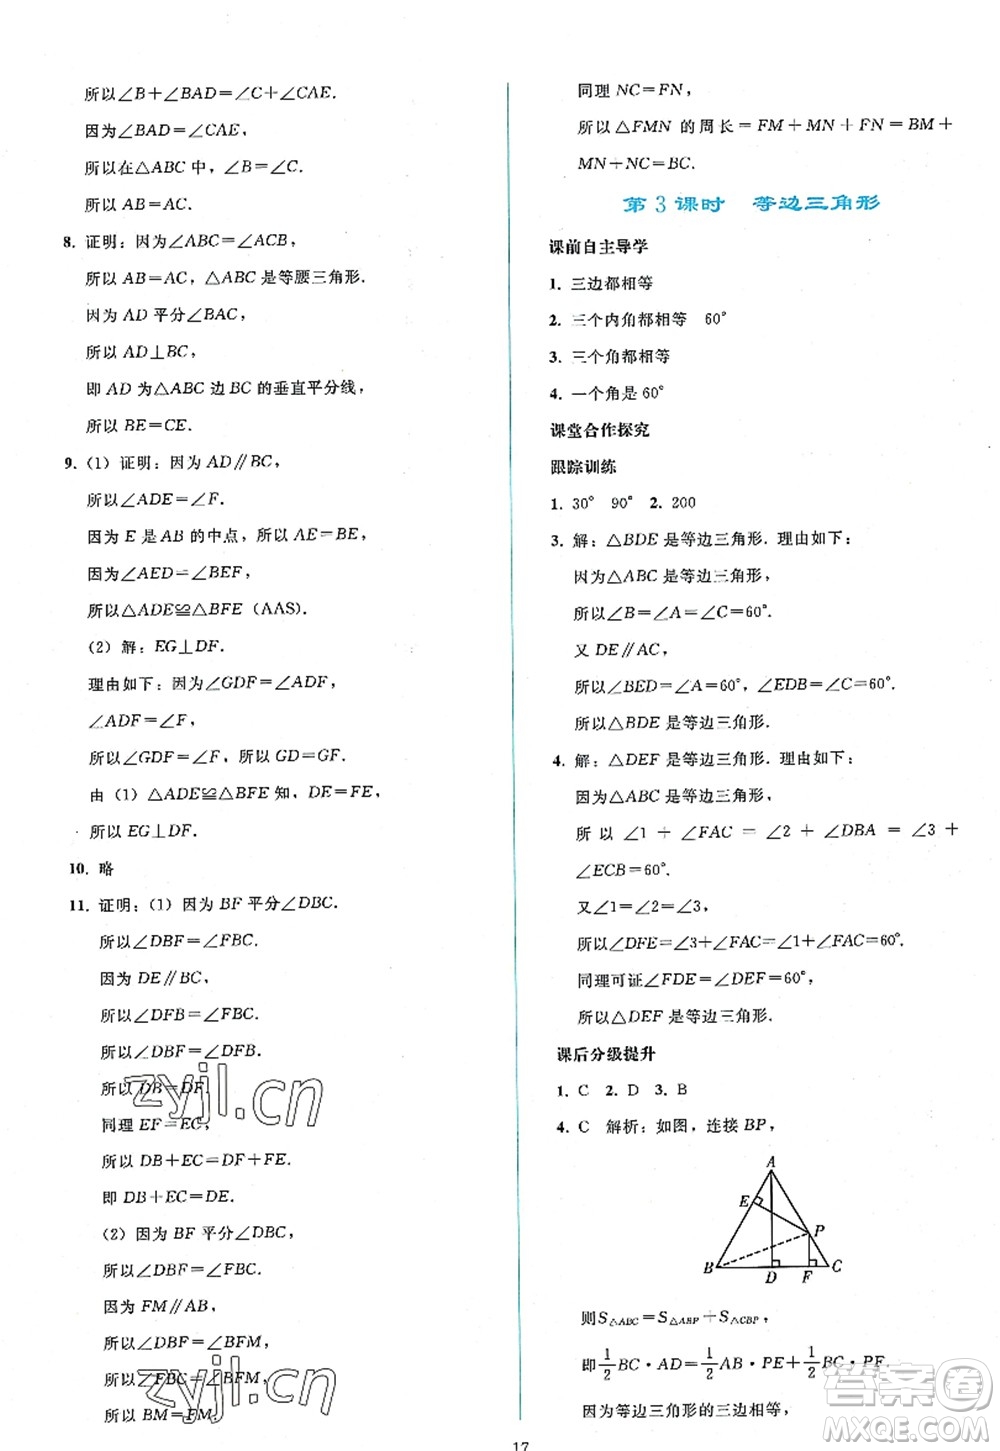 所以∠B+∠BAD=∠C+∠CAE.
因为∠BAD=∠CAE,
所以在△ABC中,∠B=∠C.
所以AB=AC.
8. 证明:因为∠ABC=∠ACB,
所以AB=AC,△ABC是等腰三角形.
因为AD平分∠BAC,
所以AD⊥BC,
即AD为△ABC边BC的垂直平分线,
所以BE=CE.
9. (1)证明:因为AD∥BC,
所以∠ADE=∠F.
因为E是AB的中点,所以AE=BE.
因为∠AED=∠BEF,
所以△ADE≌△BFE(AAS).
(2)解:EG⊥DF.
理由如下:因为∠GDF=∠ADF,
∠ADF=∠F,
所以∠GDF=∠F,所以GD=GF.
由(1)△ADE≌△BFE知,DE=FE,
所以EG⊥DF.
10. 略
11. 证明:(1)因为BF平分∠DBC.
所以∠DBF=∠FBC.
因为DE∥BC,
所以∠DFB=∠FBC.
所以∠DBF=∠DFB.
所以DB=DF.
同理EF=EC,
所以DB+EC=DF+FE.
即DB+EC=DE.
(2)因为BF平分∠DBC,
所以∠DBF=∠FBC.
因为FM∥AB,
所以∠DBF=∠BFM,
所以∠FBC=∠BFM,
所以BM=FM,
同理NC=FN,
所以△FMN的周长=FM+MN+FN=BM+
MN+NC=BC.
第3课时 等边三角形
课前自主导学
1. 三边都相等
2. 三个内角都相等 60°
3. 三个角都相等
4. 一个角是60°
课堂合作探究
跟踪训练
1. 30° 90° 2. 200
3. 解:△BDE是等边三角形.理由如下:
因为△ABC是等边三角形,
所以∠B=∠A=∠C=60°.
又DE∥AC,
所以∠BED=∠A=60°,∠EDB=∠C=60°.
所以△BDE是等边三角形.
4. 解:△DEF是等边三角形.理由如下:
因为△ABC是等边三角形,
所以∠1+∠FAC=∠2+∠DBA=∠3+
∠ECB=60°.
又∠1=∠2=∠3,
所以∠DFE=∠3+∠FAC=∠1+∠FAC=60°.
同理可证∠FDE=∠DEF=60°,
所以△DEF是等边三角形.
课后分级提升
1. C 2. D 3. B
4. C 解析:如图,连接BP,
A
E
P
B D F C
则S△ABC=S△ABP+S△CBP,
即1/2BC·AD=1/2AB·PE+1/2BC·PF.
因为等边三角形的三边相等,
17
zyjl.cn
zyjl.cn
答案圈
MXQE.COM